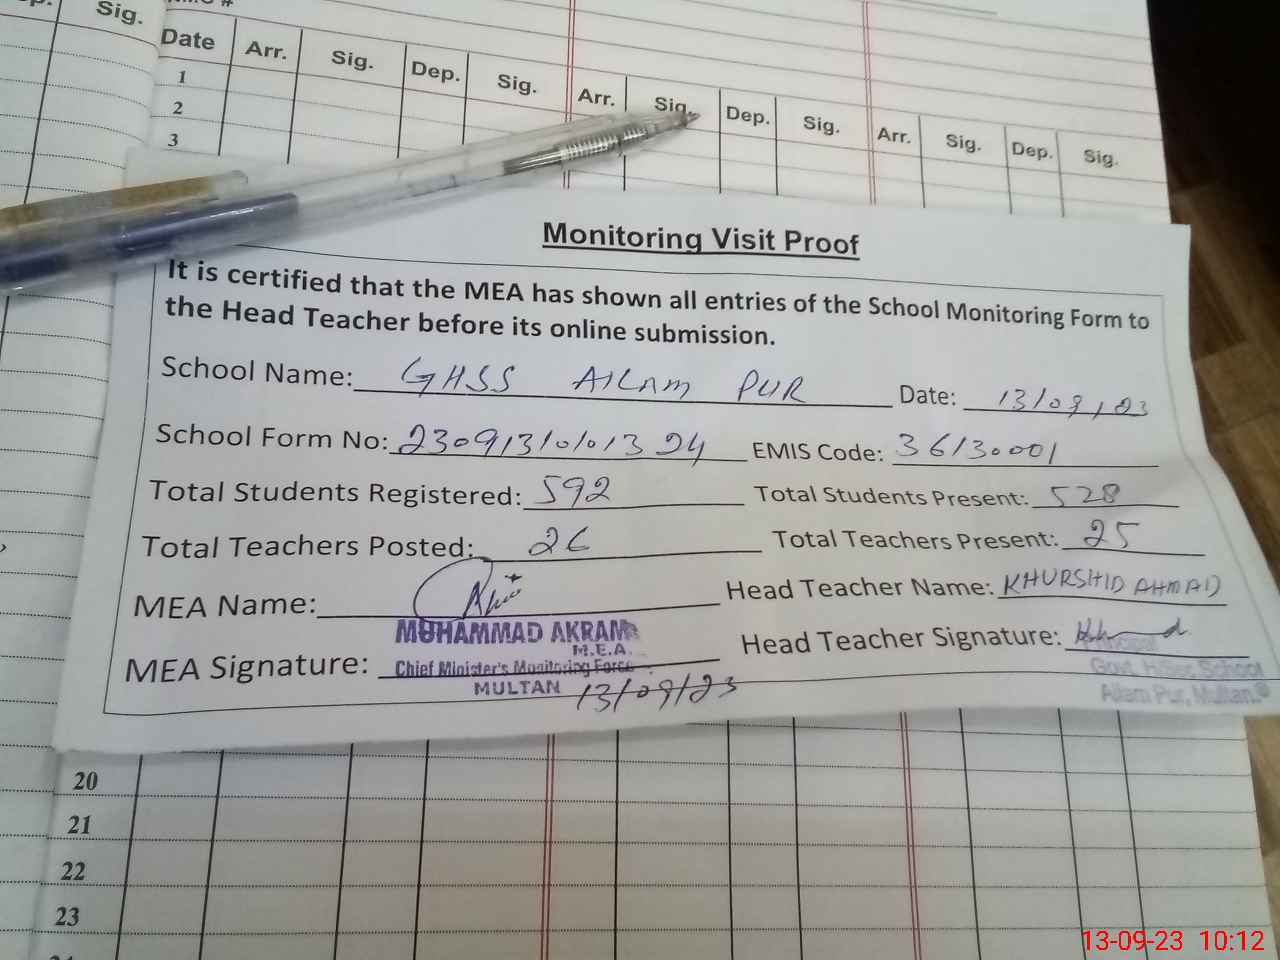 Sig.
Date Arr. Sig. Dep. Sig. Arr. Sig. Dep. Sig. Arr. Sig. Dep. Sig.
1
2
3
Monitoring Visit Proof
It is certified that the MEA has shown all entries of the School Monitoring Form to
the Head Teacher before its online submission.
School Name: GHSS AILAM PUR Date: 13/09/23
School Form No: 23091310101324 EMIS Code: 36130001
Total Students Registered: 592 Total Students Present: 528
Total Teachers Posted: 26 Total Teachers Present: 25
MEA Name: Head Teacher Name: KHURSHID AHMAD
MUHAMMAD AKRAM
M.E.A.
MEA Signature: Chief Minister's Monitoring Force Head Teacher Signature:
MULTAN 13/09/23
Principal
Govt. H/Sec. School
Ailam Pur, Multan.
20
21
22
23
13-09-23 10:12